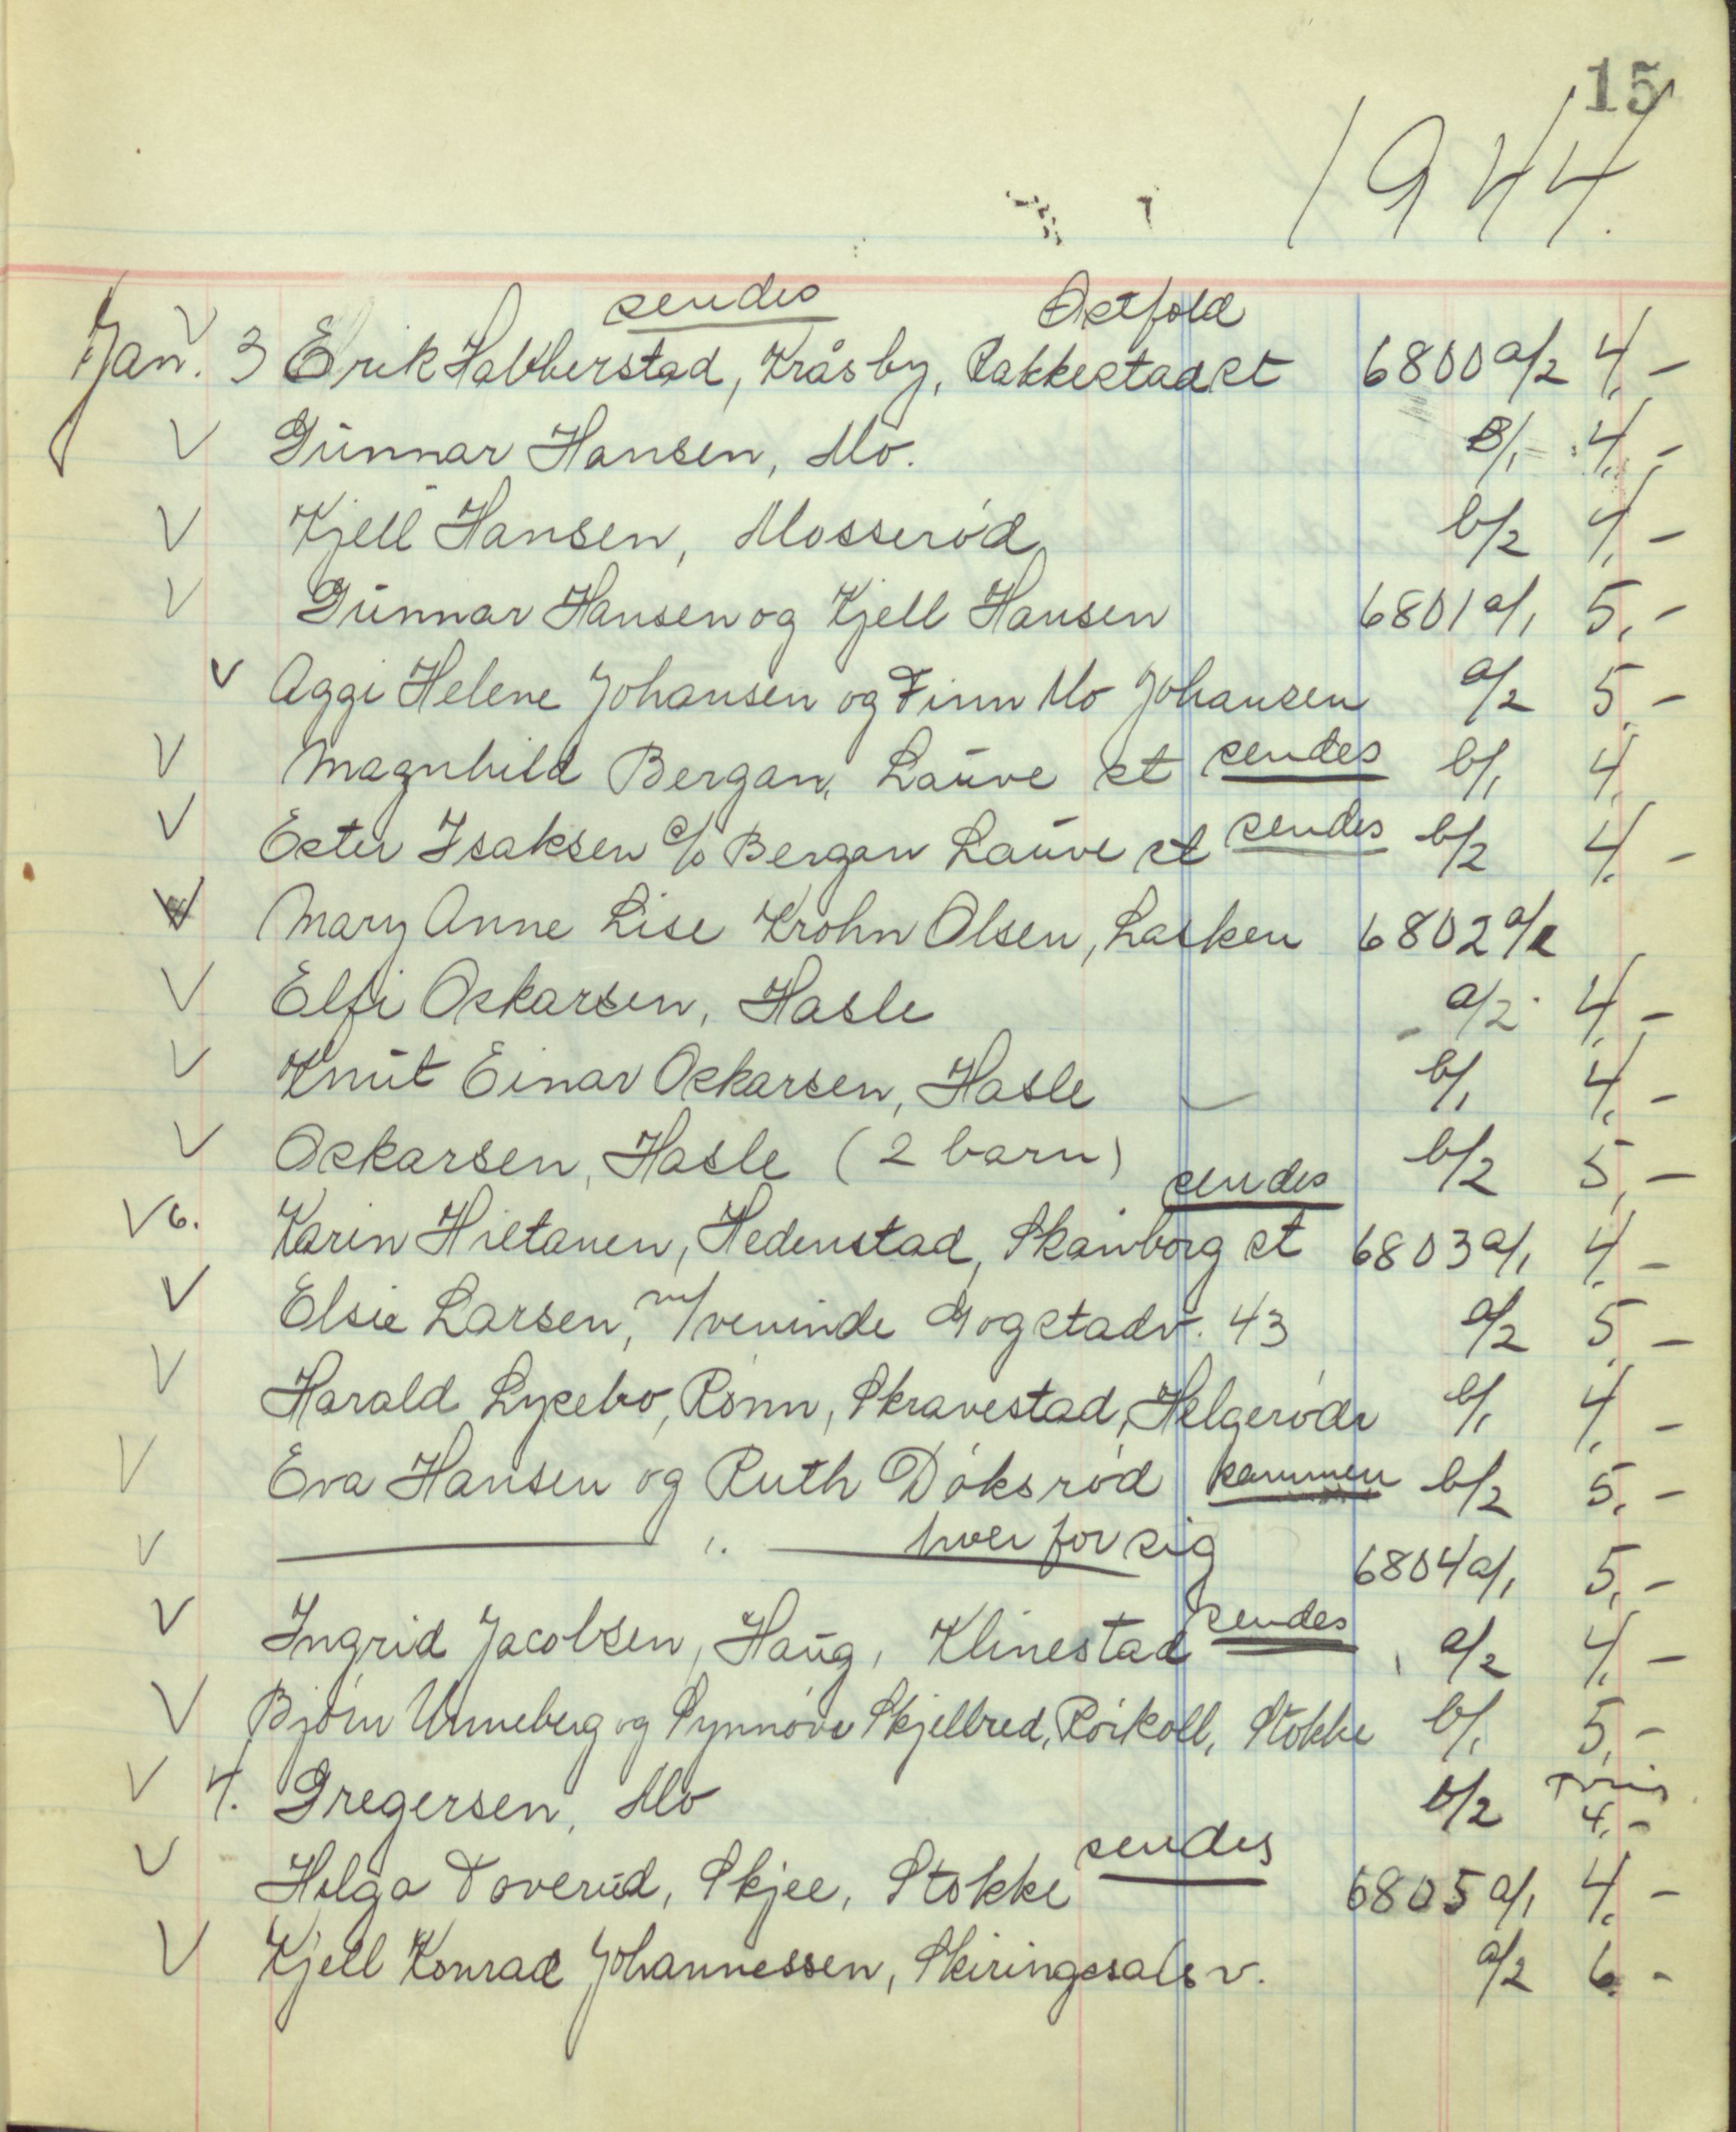 15
1944.
sendes Østfold
Jan. 3 Erik Halvherstad, Kråsby, Rakkestad st 6800 a/2 4,-
Gunnar Hansen, Mo. B/1 4,-
Kjell Hansen, Mosserød b/2 4,-
Gunnar Hansen og Kjell Hansen 6801 a/1 5,-
Aggi Helene Johansen og Finn Mo Johansen a/2 5,-
Magnhild Bergan, Lauve st sendes b/1 4,
Ester Isaksen c/o Bergan Lauve st sendes b/2 4,-
Mary Anne Lise Krohn Olsen, Lasken 6802 a/1
Elfi Oskarsen, Hasle a/2 4,-
Knut Einar Oskarsen, Hasle b/1 4,-
Oskarsen, Hasle (2 barn) b/2 5,-
sendes
6. Karin Hietanen, Hedenstad, Skavborg st 6803 a/1 4,-
Elsie Larsen, m/veninde Gogstadv. 43 a/2 5,-
Harald Lysebo, Rønn, Skravestad, Helgeroa b/1 4,-
Eva Hansen og Ruth Døksrød sammen b/2 5,-
— " — hver for sig 6804 a/1 5,-
Ingrid Jacobsen, Haug, Klinestad sendes a/2 4,-
Bjørn Unneberg og Synnøve Skjellred, Rørkoll, Stokke b/1 5,-
4. Gregersen, Mo b/2 4,-
Helga Toverud, Skjee, Stokke sendes 6805 a/1 4,-
Kjell Konrad Johannessen, Skiringssals v. a/2 6,-